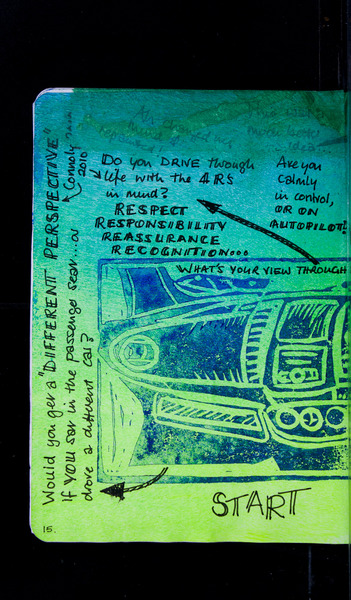 Do you DRIVE through
life with the 4 RS
in mind?
RESPECT
RESPONSIBILITY
REASSURANCE
RECOGNITION...
Are you
calmly
in control,
OR ON
AUTOPILOT!
WHAT'S YOUR VIEW THROUGH
Would you get a "DIFFERENT PERSPECTIVE"
If YOU sat in the passenger seat.. or
drove a different car?
Connolly
2010
START
15.